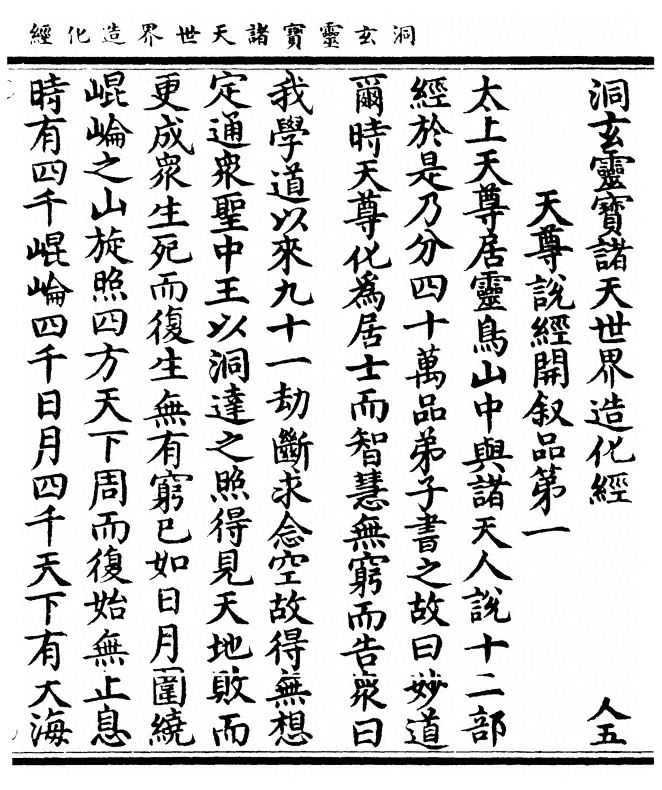 洞玄靈寶諸天世界造化經
洞玄靈寶諸天世界造化經 人五
天尊說經開叙品第一
太上天尊居靈鳥山中與諸天人說十二部
經於是乃分四十萬品弟子書之故曰妙道
爾時天尊化為居士而智慧無窮而告衆曰
我學道以來九十一劫斷求念空故得無想
定通衆聖中王以洞達之照得見天地敗而
更成衆生死而復生無有窮已如日月圍繞
崐崘之山旋照四方天下周而復始無止息
時有四千崐崘四千日月四千天下有大海